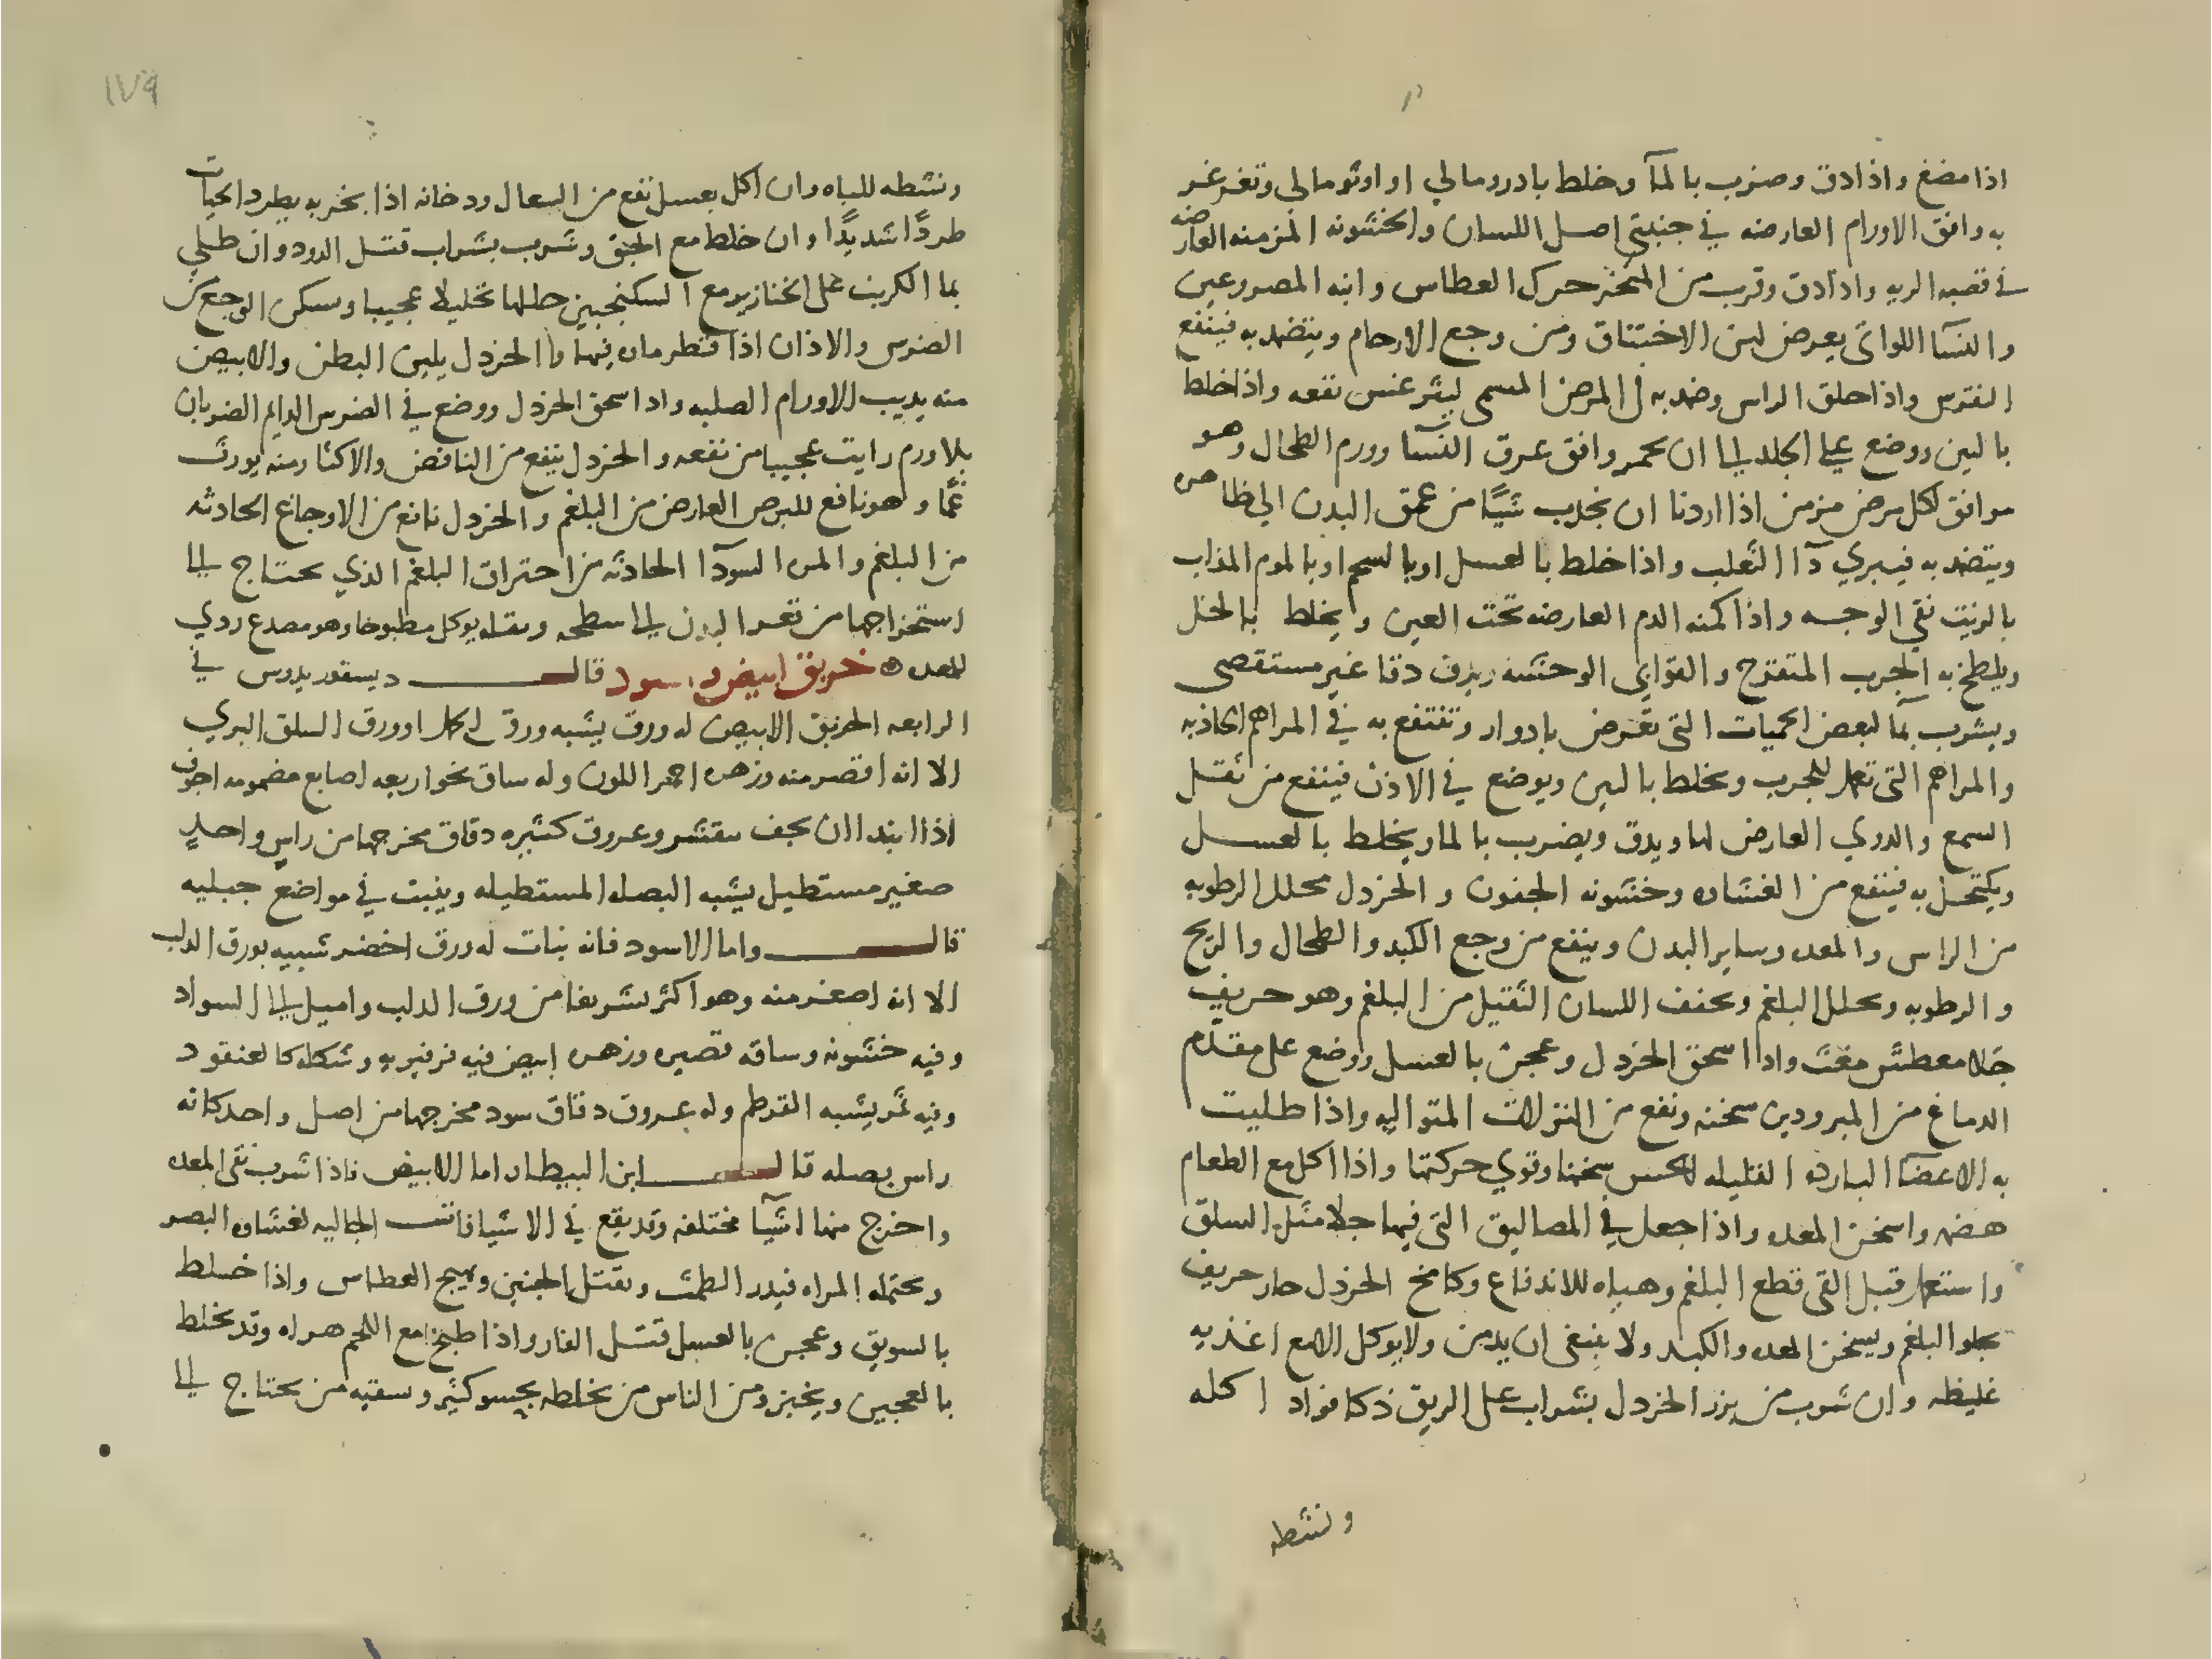 اذا مضغ واذا دق وضرب بالمآ وخلط بادرومالي او اونومالي وتغرغر
به وافق الاورام العارضه في جنبتي اصل اللسان والخشونه المزمنه العارضه
في قصبه الريه واذا دق وقرب من المنخر حرك العطاس وانبه المصروعين
والنسآ اللواتي يعرض لهن الاختناق ومن وجع الارحام ويتضمد به فينفع
النقرس واذا حلق الراس وضمد به المرض المسمى ليثرغس نفعه واذا خلط
بالتين ووضع على الجلد الى ان يحمر وافق عرق النسآ وورم الطحال وهو
موافق لكل مرض مزمن اذا اردنا ان نجذب شيًا من عمق البدن الي ظاهره
ويتضمد به فيبري دآ الثعلب واذا خلط بالعسل او بالشحم او بالموم المذاب
بالزيت نقي الوجه واذا كمنه الدم العارضه تحت العين ويخلط بالخل
ويلطخ به الجرب المتقرح والقوابي الوحشه ويدق دقا غير مستقصى
ويشرب بمآ لبعض الحميات التي تعرض بادوار وتنتفع به في المراهم الجاذبه
والمراهم التي تعمل للجرب ويخلط بالتين ويوضع في الاذن فينفع من ثقل
السمع والدوي العارض لها ويدق ويضرب بالما ويخلط بالعسل
ويكتحل به فينفع من الغشاوه وخشونه الجفون والخردل محلل الرطوبه
من الراس والمعده وساير البدن وينفع من وجع الكبد والطحال والريح
والرطوبه ويحلل البلغم ويخفف اللسان الثقيل من البلغم وهو حريف
جَلا معطش مغث واذا سحق الخردل وعجن بالعسل ووضع على مقدّم
الدماغ من المبرودين سخنه ونفع من النزلات المتواليه واذا طليت
به الاعضآ البارده القليله الحس سخنها وقوي حركتها واذا اكل مع الطعام
هضمه واسخن المعده واذا جعل في المصاليق التي فيها جلا مثل السلق
واستعمل قبل القي قطع البلغم وهياه للاندفاع وكامخ الخردل حار حريف
يجلو البلغم ويسخن المعده والكبد ولا ينبغي ان يدمن ولا يوكل الا مع اغذيه
غليظه وان شرب من بزر الخردل بشراب على الريق ذكا فواد اكله
ونشطه
١٧٩
ونشطه للباه وان اكل بعسل نفع من السعال ودخانه اذا بخر به يطرد الحيات
طردًا شديدًا وان خلط مع الحبق وشرب بشراب قتل الدود وان طلي
بما الكرنب على الخنازير مع السكنجبين حللها تحليلا عجيبا وسكن الوجع من
الضرس والاذان اذا قطر ماوه فيها والخردل يلين البطن والابيض
منه يذيب الاورام الصلبه واذا سحق الخردل ووضع في الضرس الدايم الضربان
بلا ورم رايت عجيبا من نفعه والخردل ينفع من النافض والاكثار منه يورث
غمًّا وهو نافع للبرص العارض من البلغم والخردل نافع من الاوجاع الحادثه
من البلغم والمره السودآ الحادثه من احتراق البلغم الذي يحتاج الى
استخراجها من قعر البدن الى سطحه وبقله يوكل مطبوخا وهو مصدع ردي
للمعده ه خربق ابيض واسود قال ديسقوريدوس في
الرابعه الخربق الابيض له ورق يشبه ورق لسان الحمل او ورق السلق البري
الا انه اقصر منه وزهره احمر اللون وله ساق نحو اربعه اصابع مضمومه اجوف
اذا ابتدا ان يجف يتقشر وعروق كثيره دقاق مخرجها من راس واحدٍ
صغير مستطيل يشبه البصله المستطيله وينبت في مواضع جبليه
قال واما الاسود فانه نبات له ورق اخضر شبيه بورق الدلب
الا انه اصغر منه وهو اكثر تشريفا من ورق الدلب واميل الى السواد
وفيه خشونه وساقه قصيره وزهره ابيض فيه فرفيريه وشكله كالعنقود
وفيه ثمر يشبه القرطم وله عروق دقاق سود مخرجها من اصل واحد كانه
راس بصله قال ابن البيطار اما الابيض فاذا شرب نقى المعده
واخرج منها اشيآ مختلفه وقد يقع في الاشيافات الجاليه لغشاوه البصر
ويحتمله المراه فيدر الطمث ويقتل الجنين ويهيج العطاس واذا خلط
بالسويق وعجن بالعسل قتل الفار واذا طبخ مع اللحم هراه وقد يخلط
بالعجين ويخبز ومن الناس من يخلطه بحسو كثير وسقيه من يحتاج الى